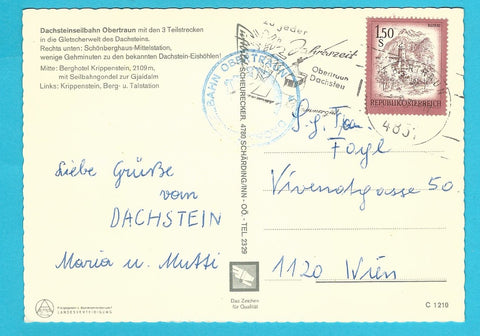 Dachsteinseilbahn Obertraun mit den 3 Teilstrecken
in die Gletscherwelt des Dachsteins.
Rechts unten: Schönberghaus-Mittelstation,
wenige Gehminuten zu den bekannten Dachstein-Eishöhlen!
Mitte: Berghotel Krippenstein, 2109 m,
mit Seilbahngondel zur Gjaidalm
Links: Krippenstein, Berg- u. Talstation
Liebe Grüße
vom
DACHSTEIN
Maria u. Mutti
LANDESVERTEIDIGUNG
SCHEURECKER, 4780 SCHÄRDING/INN - OÖ. - TEL 2329
Das Zeichen
für Qualität
zu jeder
Jahreszeit
Obertraun
Dachstein
1.50
S
REPUBLIK ÖSTERREICH
S.g. Fam.
Fayl
Vivenotgasse 50
1120 Wien
C 1210